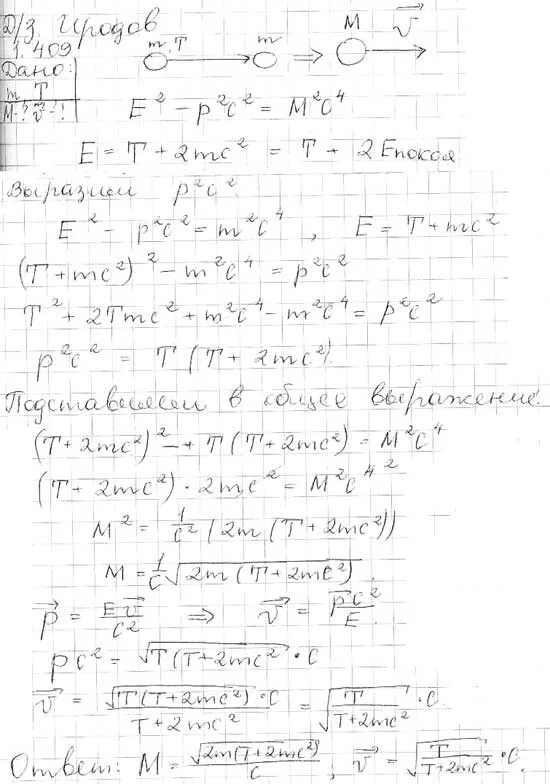 Д/з. Иродов
1.409
m T m ⇒ M v⃗
Дано:
m T
M-? v⃗-?
E² - p²c² = M²c⁴
E = T + 2mc² = T + 2Eпокоя
Выразим p²c²
E² - p²c² = m²c⁴ , E = T + mc²
(T + mc²)² - m²c⁴ = p²c²
T² + 2Tmc² + m²c⁴ - m²c⁴ = p²c²
p²c² = T(T + 2mc²)
Подставляем в общее выражение:
(T + 2mc²)² - T(T + 2mc²) = M²c⁴
(T + 2mc²) · 2mc² = M²c⁴ ²
M² = 1/c² (2m(T + 2mc²))
M = 1/c √(2m(T + 2mc²))
p⃗ = Ev⃗/c² ⇒ v⃗ = p⃗c²/E
pc² = √(T(T + 2mc²)) · c
v⃗ = √(T(T + 2mc²)) · c / (T + 2mc²) = √(T/(T + 2mc²)) · c
Ответ: M = √(2m(T + 2mc²))/c , v⃗ = √(T/(T + 2mc²)) · c.